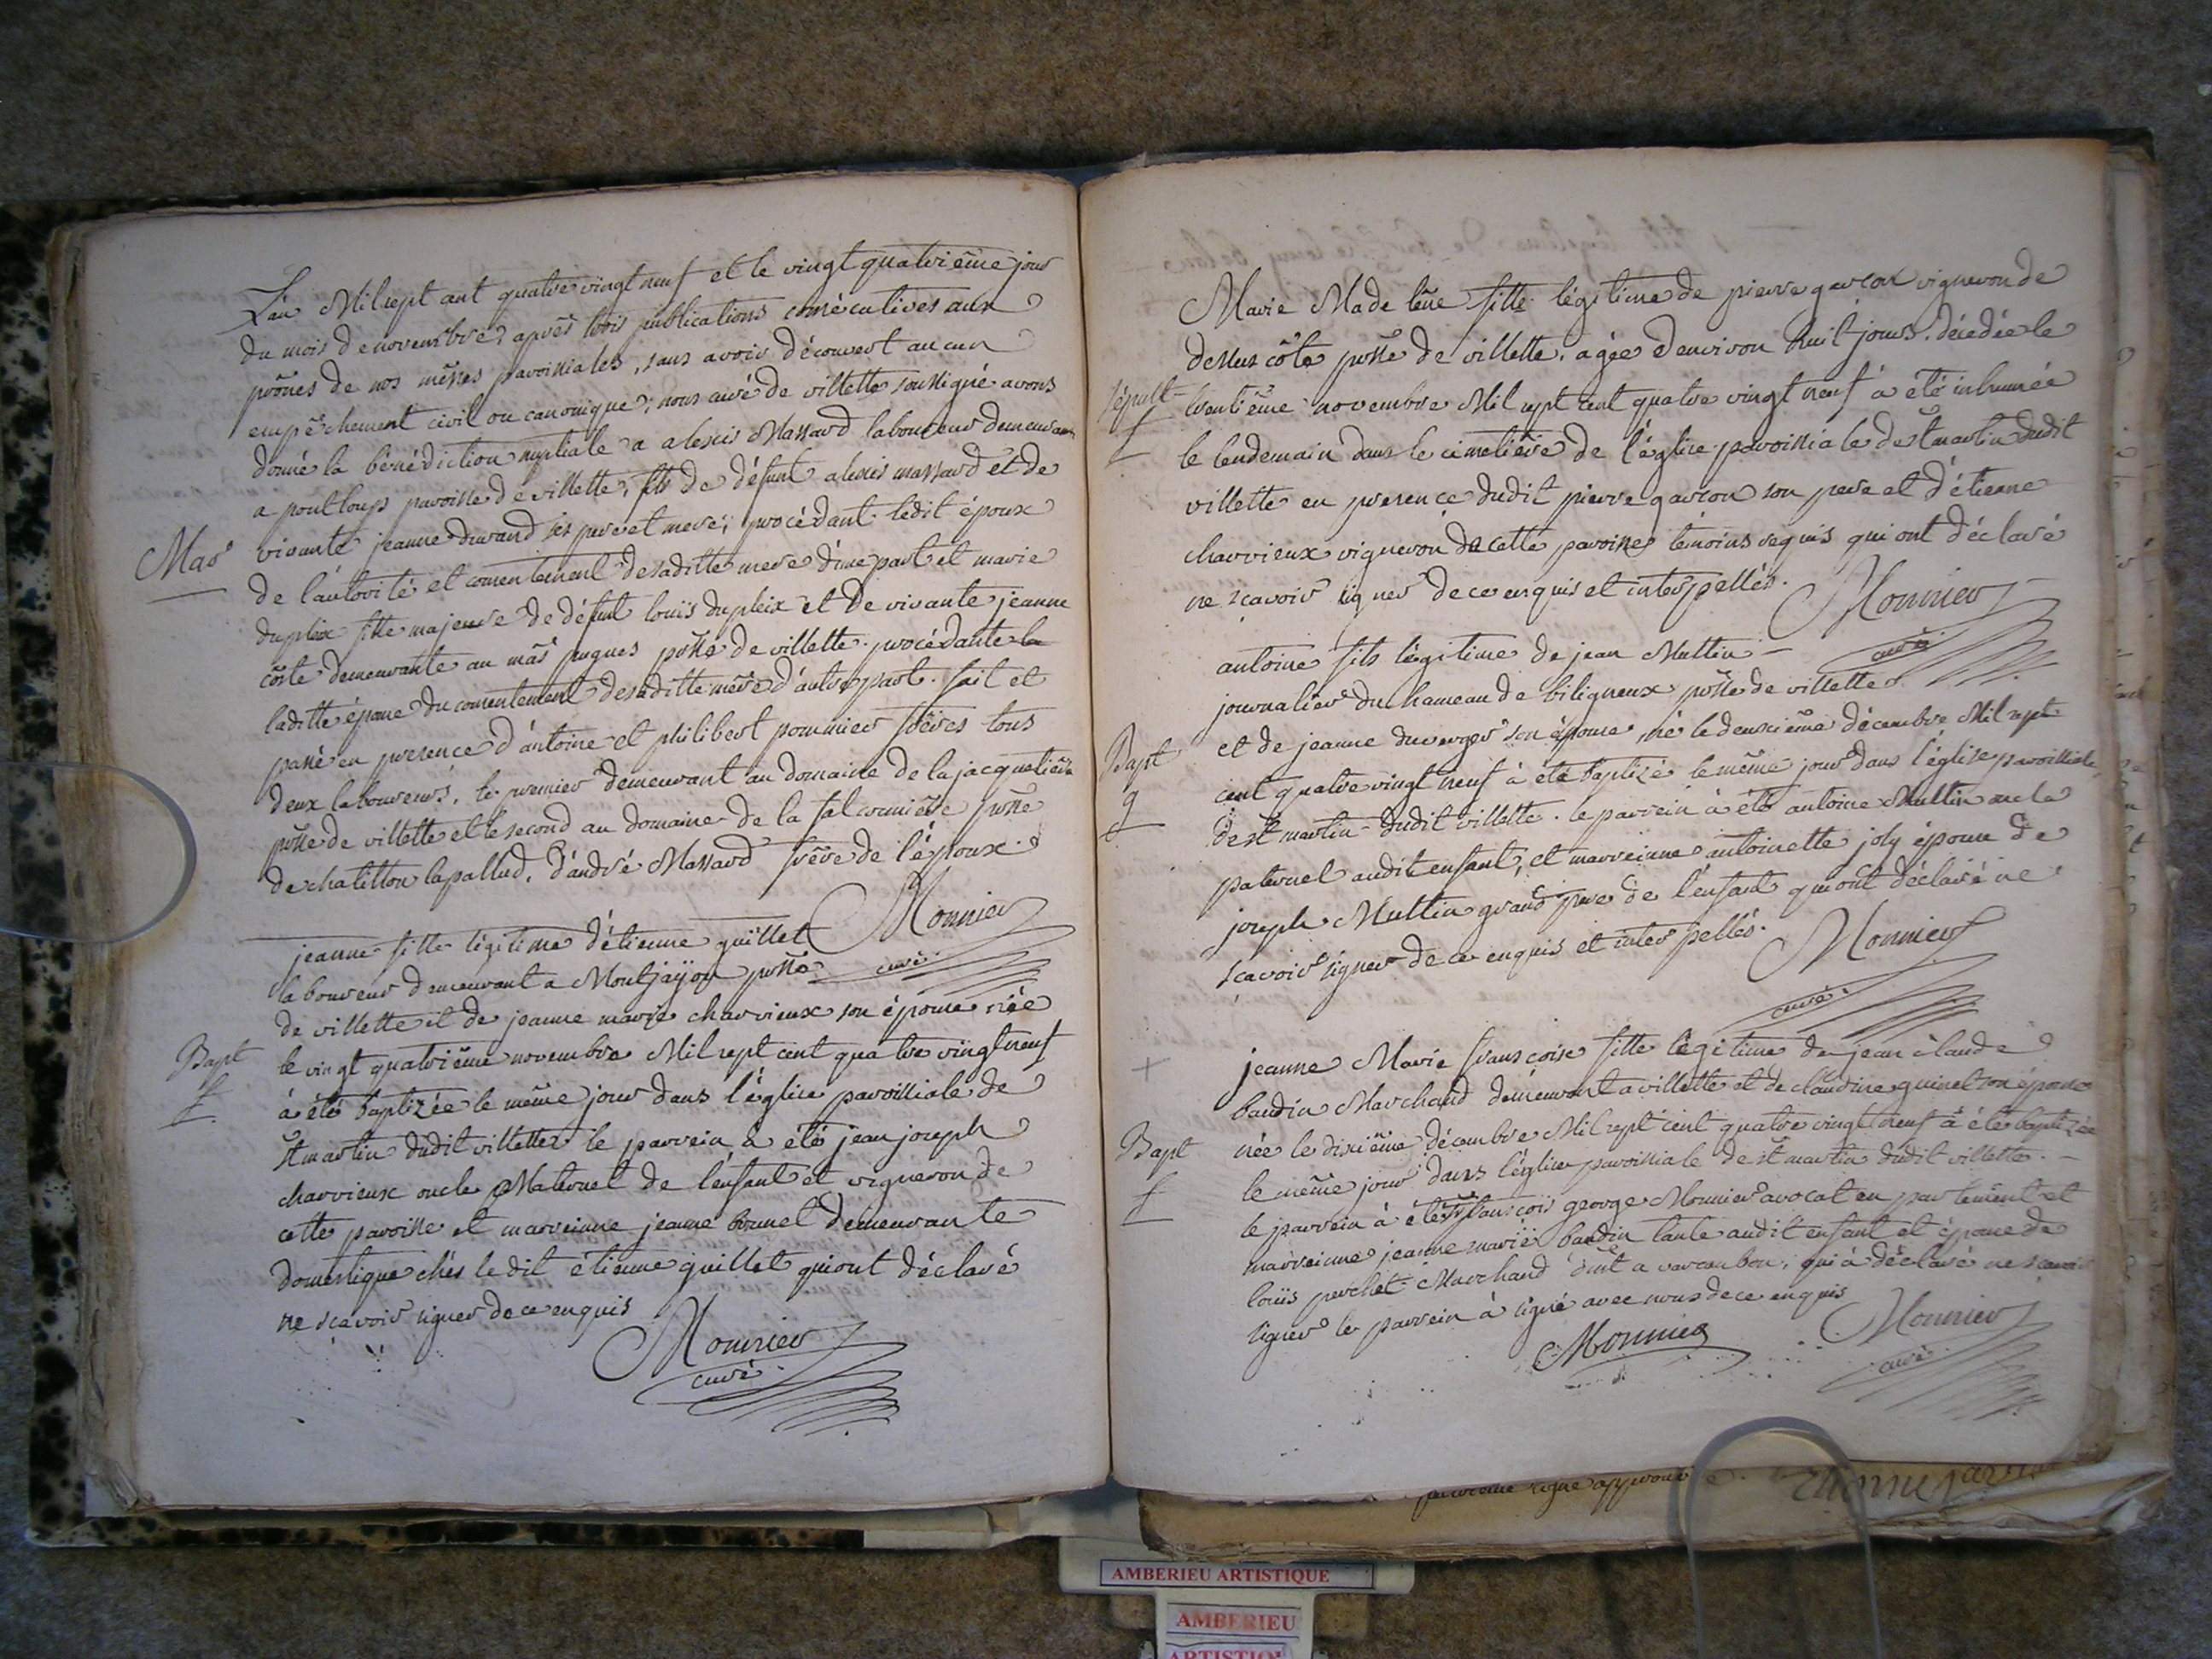 L'an Mil sept cent quatre vingt neuf et le vingt quatrième jour
du mois de novembre, après trois publications consécutives aux
prônes de nos messes paroissiales, sans avoir découvert aucun
empêchement civil ou canonique; nous curé de villette soussigné avons
donné la bénédiction nuptiale a alexis Massard laboureur demeurant
a pont loup paroisse de villette, fils de défunt alexis massard et de
Mar
vivante jeanne durand ses pere et mere; procédant ledit époux
de l'autorité et consentement de sa ditte mere d'une part et marie
dupleix fille majeure de défunt louis dupleix et de vivante jeanne
coste demeurante au mas pugues psse de villette. procédante la
laditte épouse du consentement de sa ditte mère d'autre part. fait et
passé en presence d'antoine et philibert pommier frères tous
deux laboureurs, le premier demeurant au domaine de la jacquetière
psse de villette et le second au domaine de la falconnière psse
de chatillon lapallud, d'andré Massard frère de l'époux.
Monnier
curé
jeanne fille légitime d'étienne guillet
laboureur demeurant a Montjayon psse
de villette et de jeanne marie charvieux son épouse née
Bapt
le vingt quatrième novembre Mil sept cent quatre vingt neuf
f
à été baptizée le même jour dans l'église paroissiale de
st martin dudit villette. le parrein à été jean joseph
charvieux oncle Maternel de l'enfant et vigneron de
cette paroisse et marreinne jeanne brunel demeurante
domestique chés le dit étienne guillet qui ont déclaré
ne scavoir signer de ce enquis
Monnier
curé
Marie Madelène fille légitime de pierre garcon vigneron de
dessus côte psse de villette. agée d'environ huit jours. décédée le
sépult
f
trentième novembre Mil sept cent quatre vingt neuf à été inhumée
le lendemain dans le cimetière de l'église paroissiale de st martin dudit
villette en presence dudit pierre garcon son pere et d'étienne
charvieux vigneron de cette paroisse témoins requis qui ont déclaré
ne scavoir signer de ce enquis et interpellés.
Monnier
curé
antoine fils légitime de jean Muttin
journalier du hameau de biligneux psse de villette
Bapt
g
et de jeanne duverger son épouse, né le deuxième décembre Mil sept
cent quatre vingt neuf à été baptizé le même jour dans l'église paroissiale
de st martin dudit villette. le parrein à été antoine Muttin oncle
paternel audit enfant, et marreinne antoinette joly épouse de
joseph Muttin grand pere de l'enfant qui ont déclaré ne
scavoir signer de ce enquis et interpellés.
Monnier
curé
+
jeanne Marie francoise fille légitime de jean claude
baudin Marchand demeurant a villette et de claudine guinet son épouse
Bapt
f
née le dixième décembre Mil sept cent quatre vingt neuf à été baptizée
le même jour dans l'église paroissiale de st martin dudit villette.
le parrein à été francois george Monnier avocat en parlement et
marreinne jeanne marie baudin tante audit enfant et épouse de
louis perchet Marchand dmt a varambon, qui à déclaré ne scavoir
signer le parrein à signé avec nous de ce enquis
Monnier
Monnier
curé
signe approuvé
AMBERIEU ARTISTIQUE
AMBERIEU
ARTISTIQUE